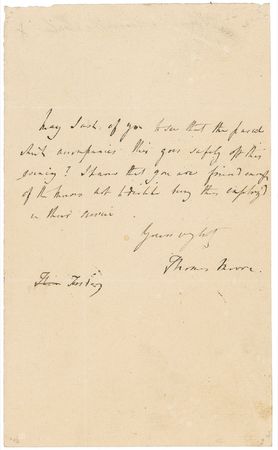 May I ask of you to see that the parcel
which accompanies this goes safely off this
evening? I know that you are friend enough
of the Muses not to dislike being thus employ'd
in their service.
Yours ev
Thomas Moore.